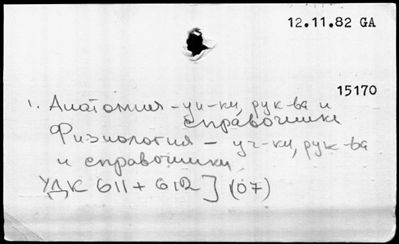 12.11.82 GA
15170
1. Анатомия - уч-ки, рук-ва и
справочники
Физиология - уч-ки, рук-ва
и справочники
УДК 611 + 612] (07)